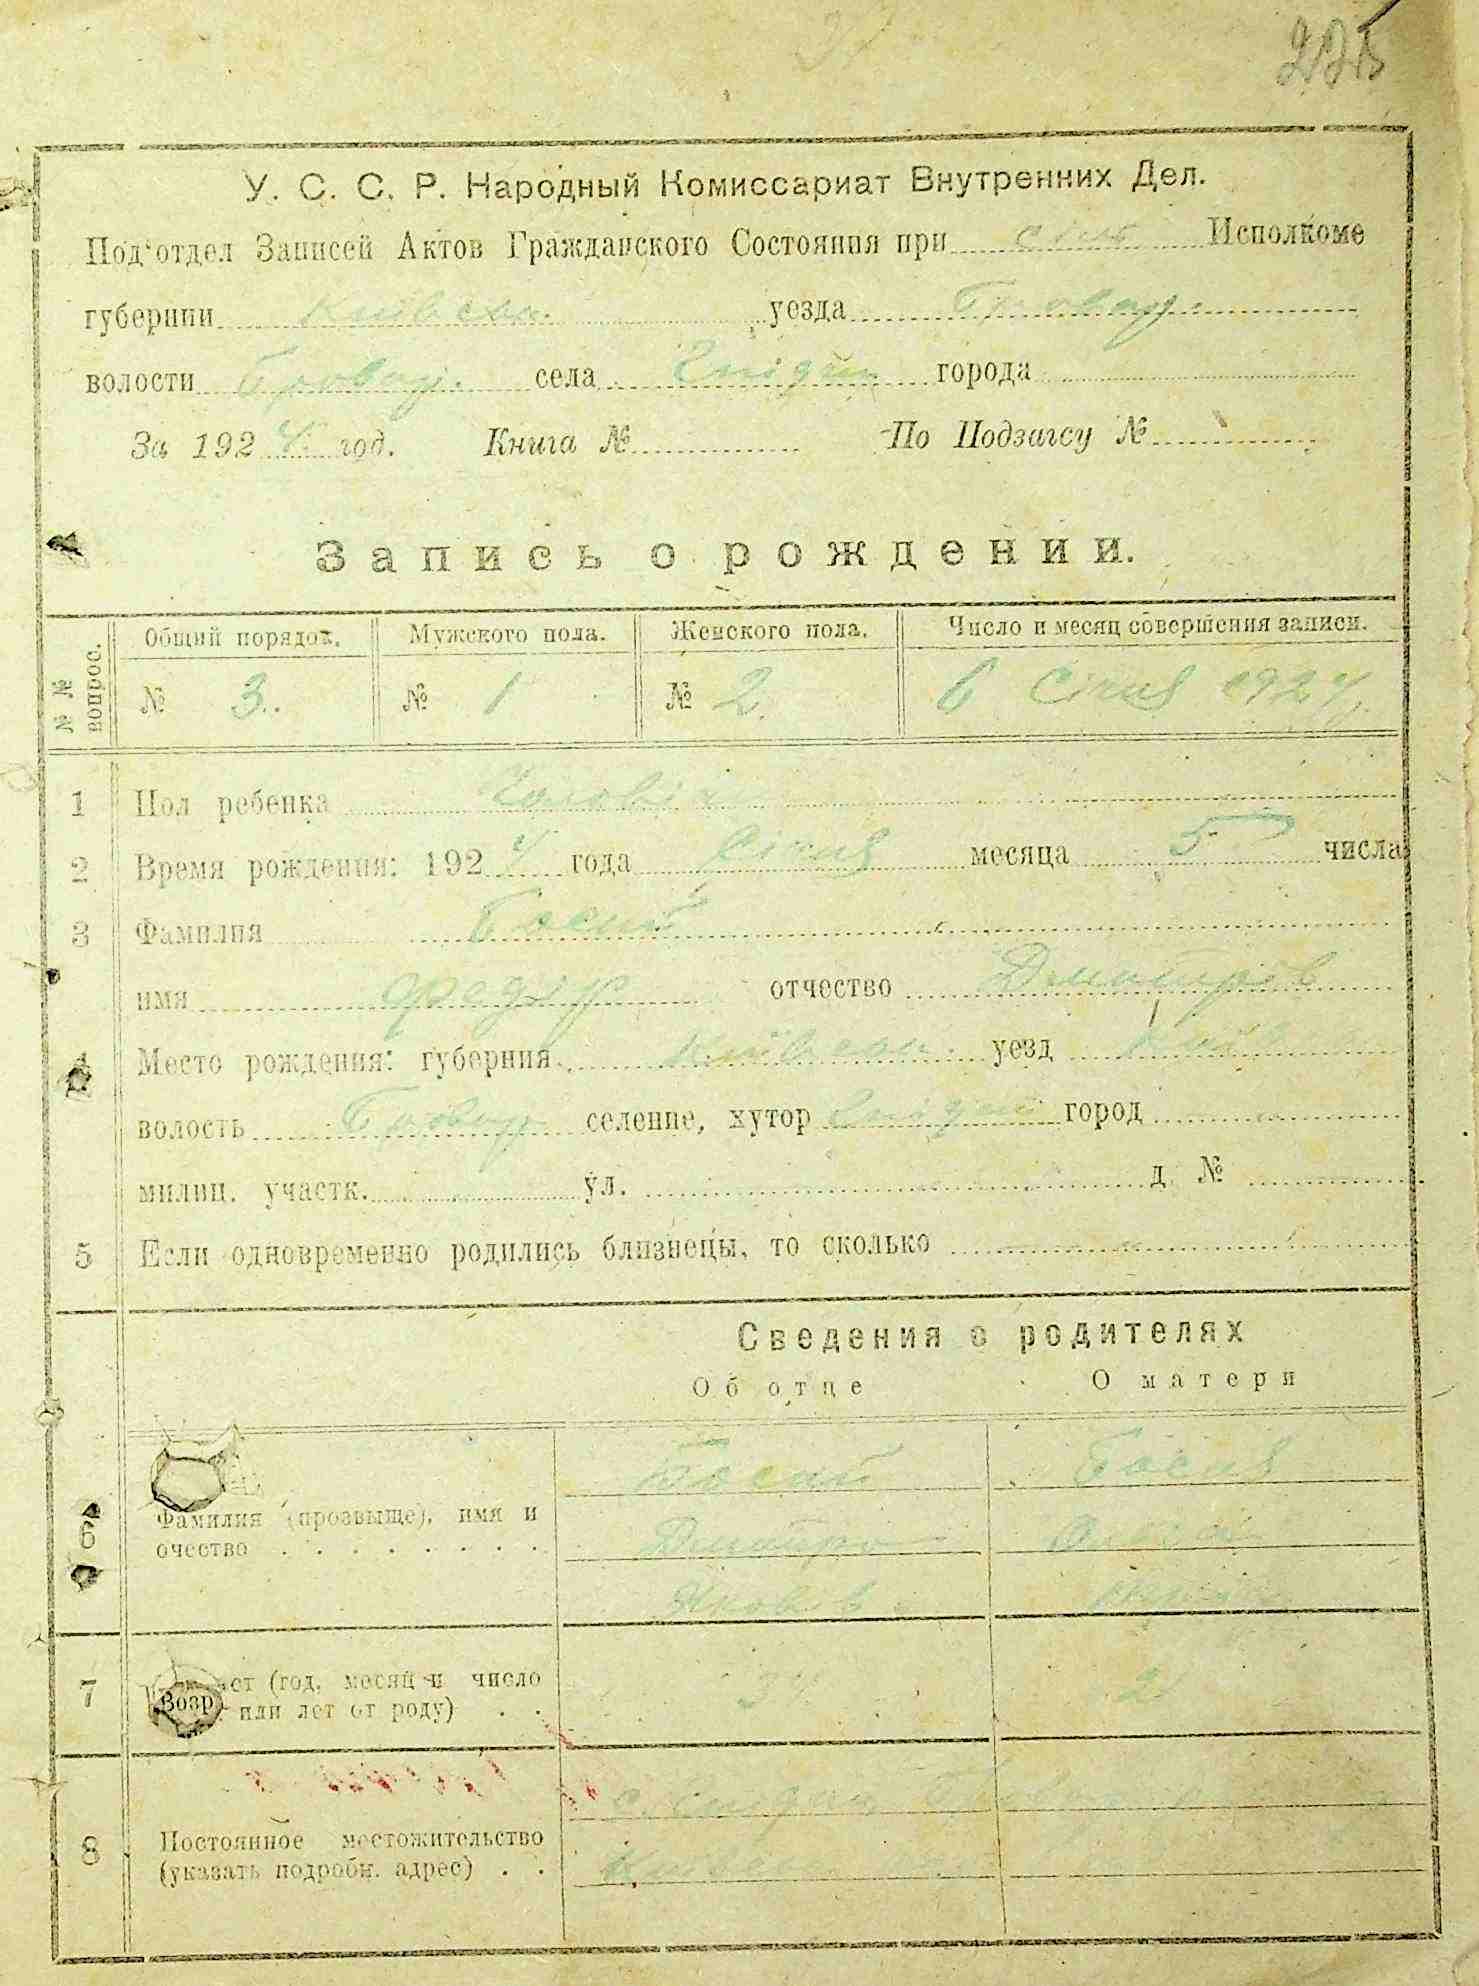 225
У. С. С. Р. Народный Комиссариат Внутренних Дел.
Под'отдел Записей Актов Гражданского Состояния при Исполкоме
губернии Київськ. уезда Бровар.
волости Бровар. села города
За 1924 год. Книга № По Подзагсу №
Запись о рождении.
№ № вопрос. Общий порядок. Мужского пола. Женского пола. Число и месяц совершения записи.
№ 3. № 1 № 2. 6 Січня 1924
1 Пол ребенка Чоловіч
2 Время рождения: 1924 года Січня месяца 5 числа
3 Фамилия Босий
имя Федір отчество Дмитрів
4 Место рождения: губерния Київськ. уезд Київ
волость Бровар селение, хутор город
милиц. участк. ул. д. №
5 Если одновременно родились близнецы, то сколько
Сведения о родителях
Об отце О матери
6 Фамилия (прозвыще), имя и Босий Босия
очество Дмитро
Яковів
7 Возраст (год, месяц и число
или лет от роду)
8 Постоянное местожительство
(указать подробн. адрес)